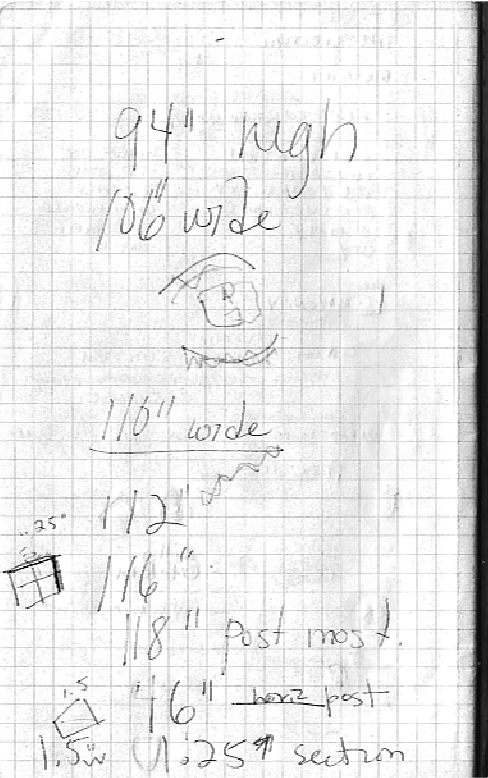 94" high
106" wide
110" wide
112"
.25"
116"
118" post most.
1.5
46" horiz post
1.5w 1.25" section